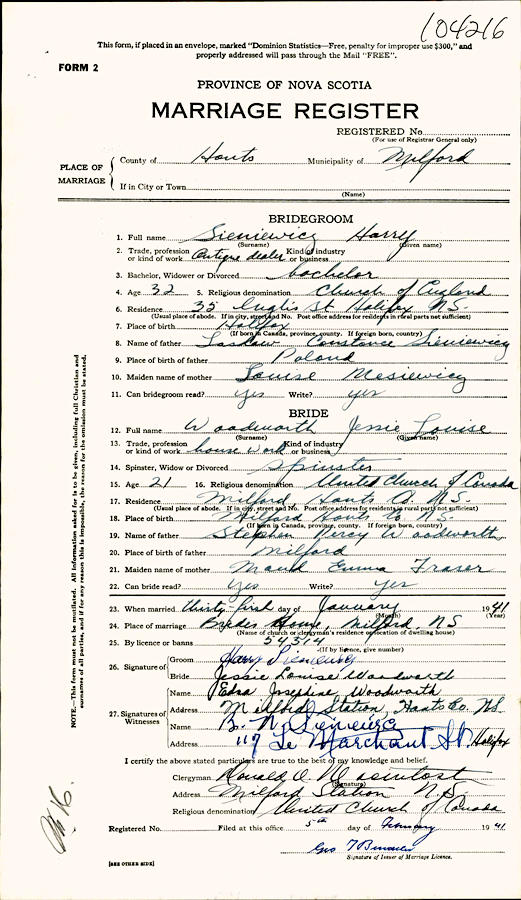 104216
This form, if placed in an envelope, marked "Dominion Statistics—Free, penalty for improper use $300," and
properly addressed will pass through the Mail "FREE".
FORM 2
PROVINCE OF NOVA SCOTIA
MARRIAGE REGISTER
REGISTERED No.
(For use of Registrar General only)
PLACE OF MARRIAGE
County of Hants Municipality of Milford
If in City or Town
(Name)
BRIDEGROOM
1. Full name Sieniewicz Harry
(Surname) (Given name)
2. Trade, profession or kind of work Antique dealer Kind of industry or business
3. Bachelor, Widower or Divorced bachelor
4. Age 32 5. Religious denomination Church of England
6. Residence 35 Inglis St Halifax N.S.
(Usual place of abode. If in city, street and No. Post office address for residents in rural parts not sufficient)
7. Place of birth Halifax
(If born in Canada, province, county. If foreign born, country)
8. Name of father Constance Sieniewicz
9. Place of birth of father Poland
10. Maiden name of mother Louise Mesiewicz
11. Can bridegroom read? yes Write? yes
BRIDE
12. Full name Woodworth Jessie Louise
(Surname) (Given name)
13. Trade, profession or kind of work house work Kind of industry or business
14. Spinster, Widow or Divorced Spinster
15. Age 21 16. Religious denomination United Church of Canada
17. Residence Milford, Hants Co. N.S.
(Usual place of abode. If in city, street and No. Post office address for residents in rural parts not sufficient)
18. Place of birth Milford Hants Co N.S.
(If born in Canada, province, county. If foreign born, country)
19. Name of father Stephen Percy Woodworth
20. Place of birth of father Milford
21. Maiden name of mother Maud Emma Fraser
22. Can bride read? Yes Write? Yes
23. When married thirty-first day of January 1941
(Month) (Year)
24. Place of marriage Brides Home, Milford, NS
(Name of church or clergyman's residence or location of dwelling house)
25. By licence or banns 54314
(If by licence, give number)
26. Signature of
Groom Harry Sieniewicz
Bride Jessie Louise Woodworth
27. Signatures of Witnesses
Name Edna Josephine Woodworth
Address Milford Station, Hants Co. NS.
Name B. N. Sieniewicz
Address 117 Le Marchant St. Halifax
I certify the above stated particulars are true to the best of my knowledge and belief.
Clergyman Ronald A. McIntosh
(Signature)
Address Milford Station N.S.
Religious denomination United Church of Canada
Registered No. Filed at this office 5th day of February 1941
Geo
Signature of Issuer of Marriage Licence.
[SEE OTHER SIDE]
NOTE.—This form must not be mutilated. All information asked for is to be given, including full Christian and
surnames of all parties, and if for any reason this is impossible, the reason for the omission must be stated.